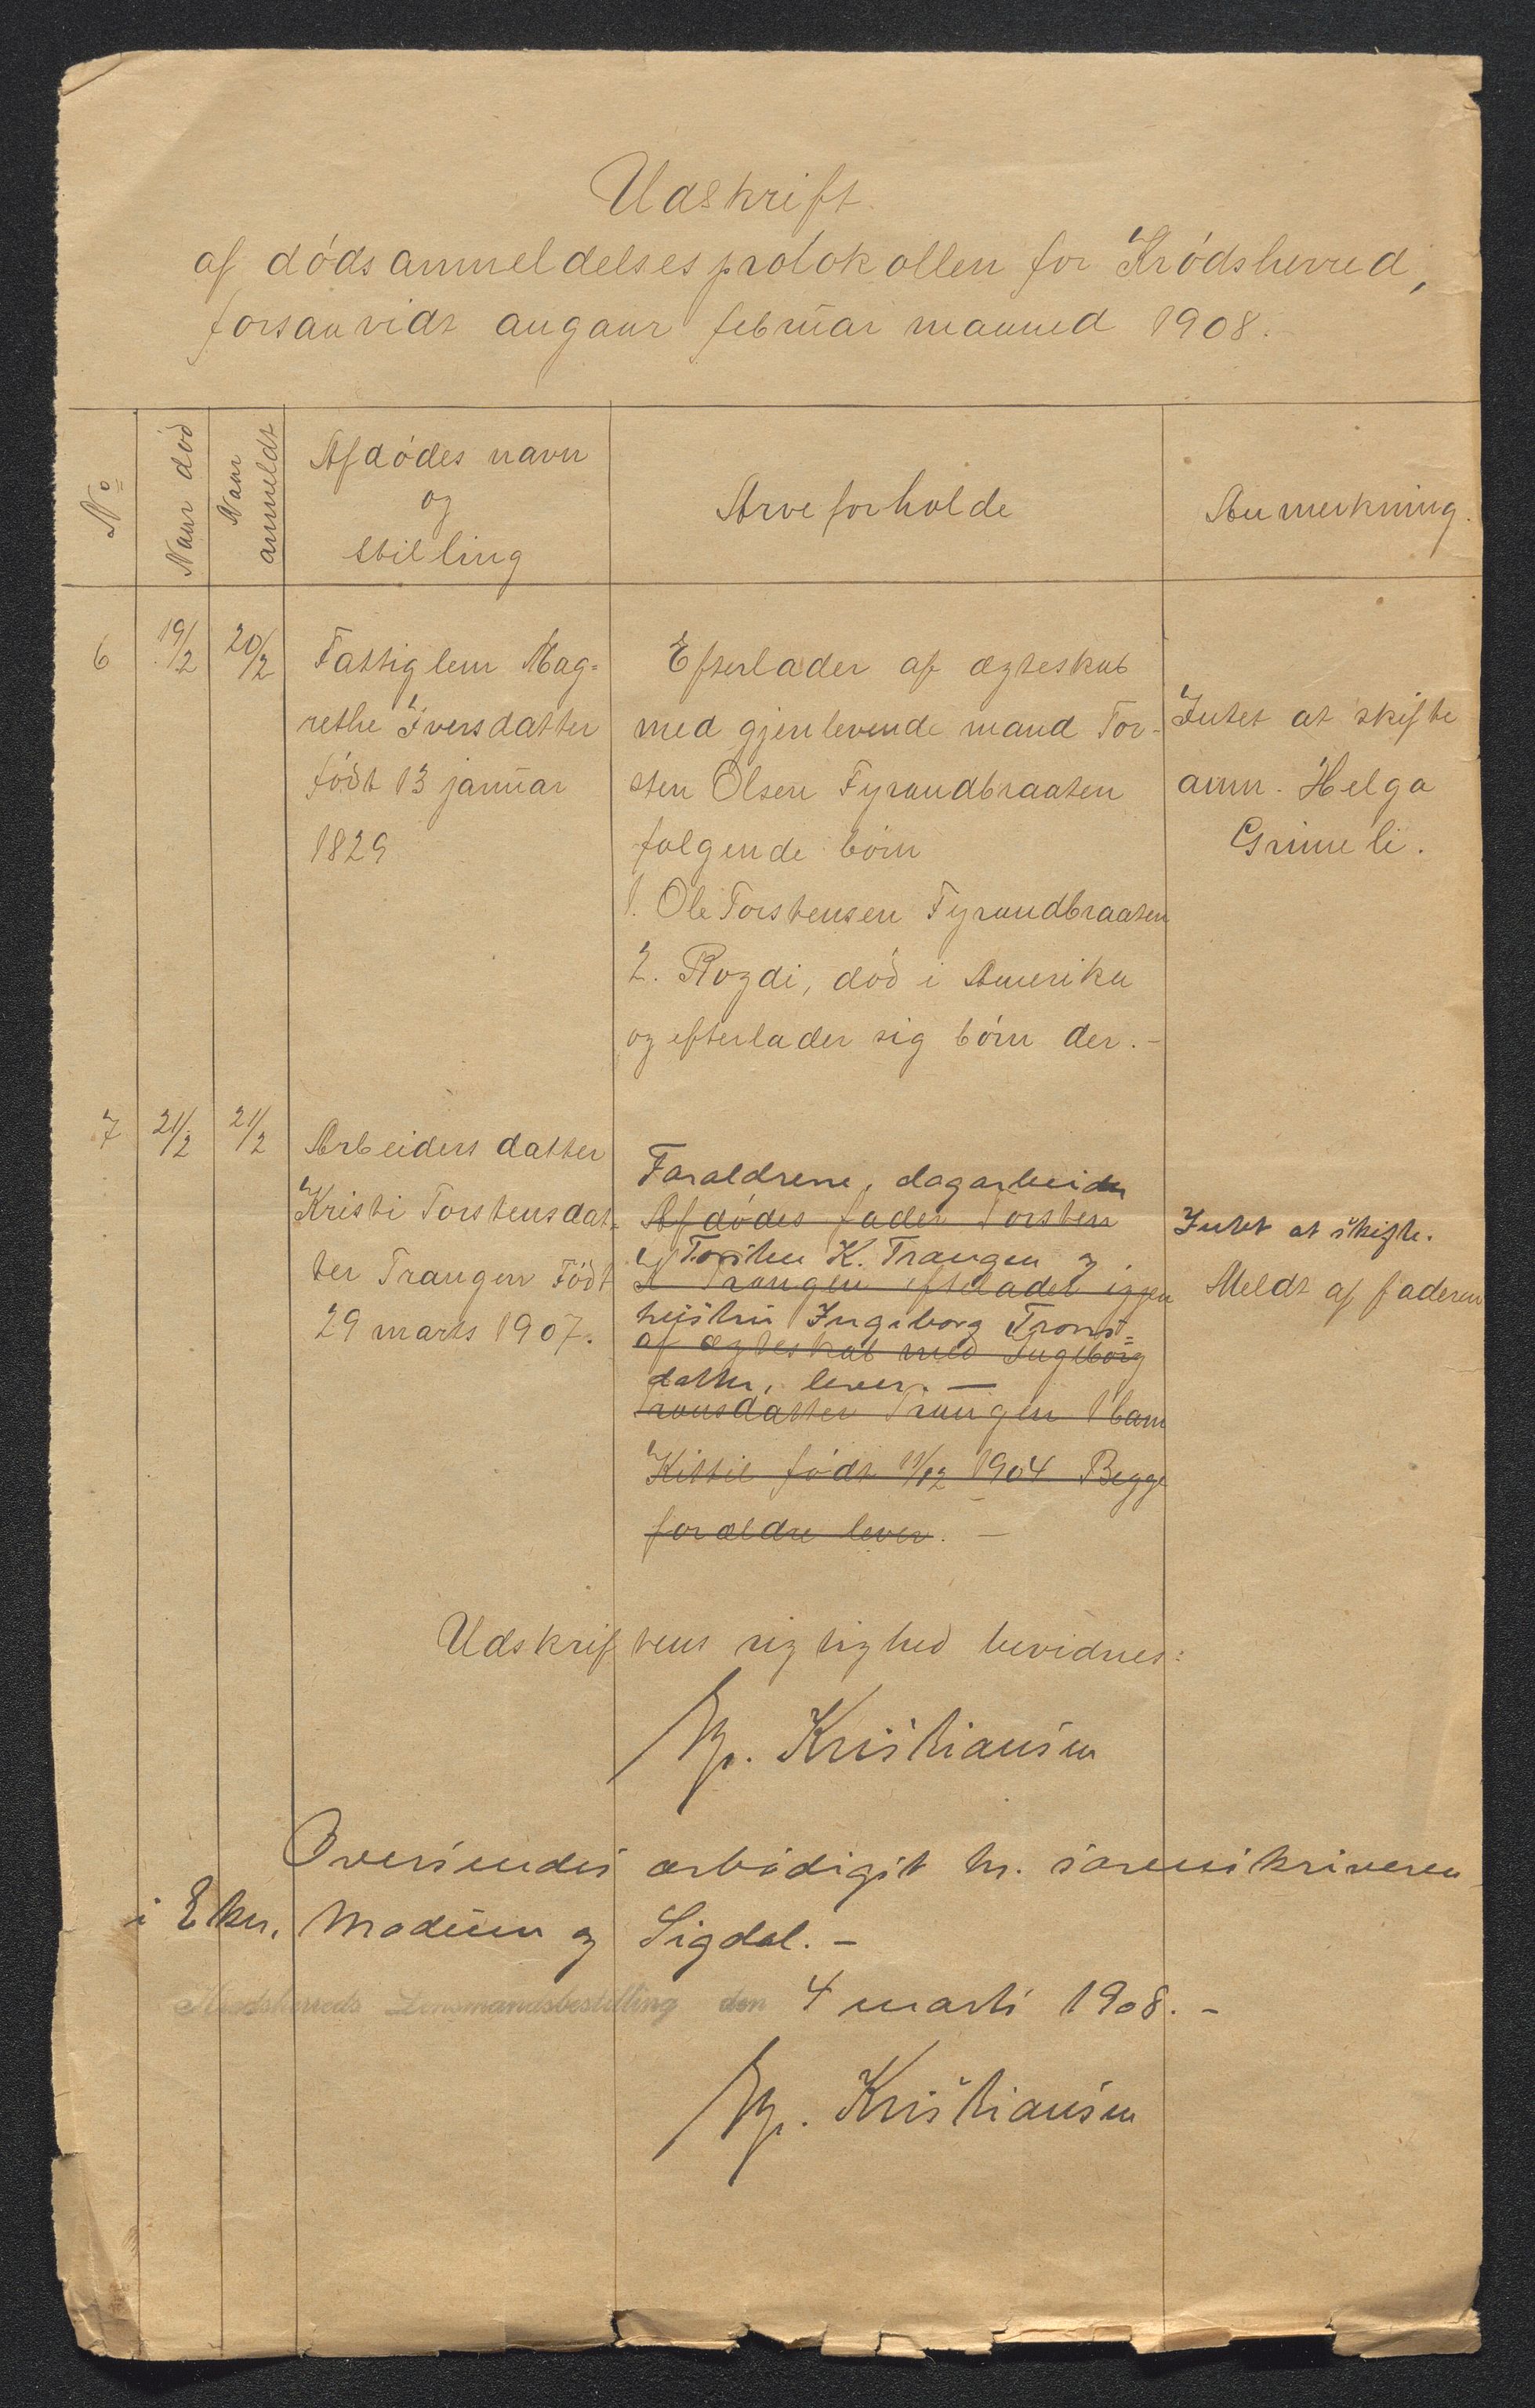 Udskrift
af dødsanmeldelsesprotokollen for Krødsherred,
forsaavidt angaar februar maaned 1908.
No
Naar død
Naar anmeldt
Afdødes navn
og
stilling
Arveforholde
Anmerkning.
6
19/2
20/2
Fattiglem Mag-
rethe Iversdatter
født 13 januar
1829
Efterlader af ægteskab
med gjenlevende mand Tor-
sten Olsen Fyrandbraaten
følgende børn
1. Ole Torstensen Fyrandbraaten
2. Rogdi, død i Amerika
og efterlader sig børn der. -
Intet at skifte
anm. Helga
Grimeli.
7
21/2
21/2
Arbeiders datter
Kristi Torstensdat-
ter Trangen Født
29 marts 1907.
Foraldrene, dagarbeider
Afdødes fader Torsten
Torsten K. Trangen og
K Trangen efterlader igjen
hustru Ingeborg Tronds-
af ægteskab med Ingeborg
datter, lever. -
Tronsdatter Trangen 1 barn
Kittil født 11/12 1904 Begge
forældre lever. -
Intet at skifte.
Meldt af faderen
Udskriftens rigtighed bevidnes:
Kristiansen
Oversendes ærbødigst hr. sorenskriveren
i Eker, Modum og Sigdal. -
Krødsherreds Lensmandsbestilling den 4 marts 1908. -
Kristiansen